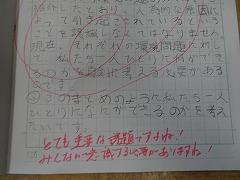 よって引き起こされているという
ことを認識しなくてはなりません。
現在、それぞれの環境問題に対し
て、私たち一人ひとりに何ができ
るのかを真剣に考える必要がある
のです。
このまとめのように私たち一人
ひとりになにができるのかを考え
たいです。
とても重要な課題ですよね!
みんなが意識する必要がありますね!